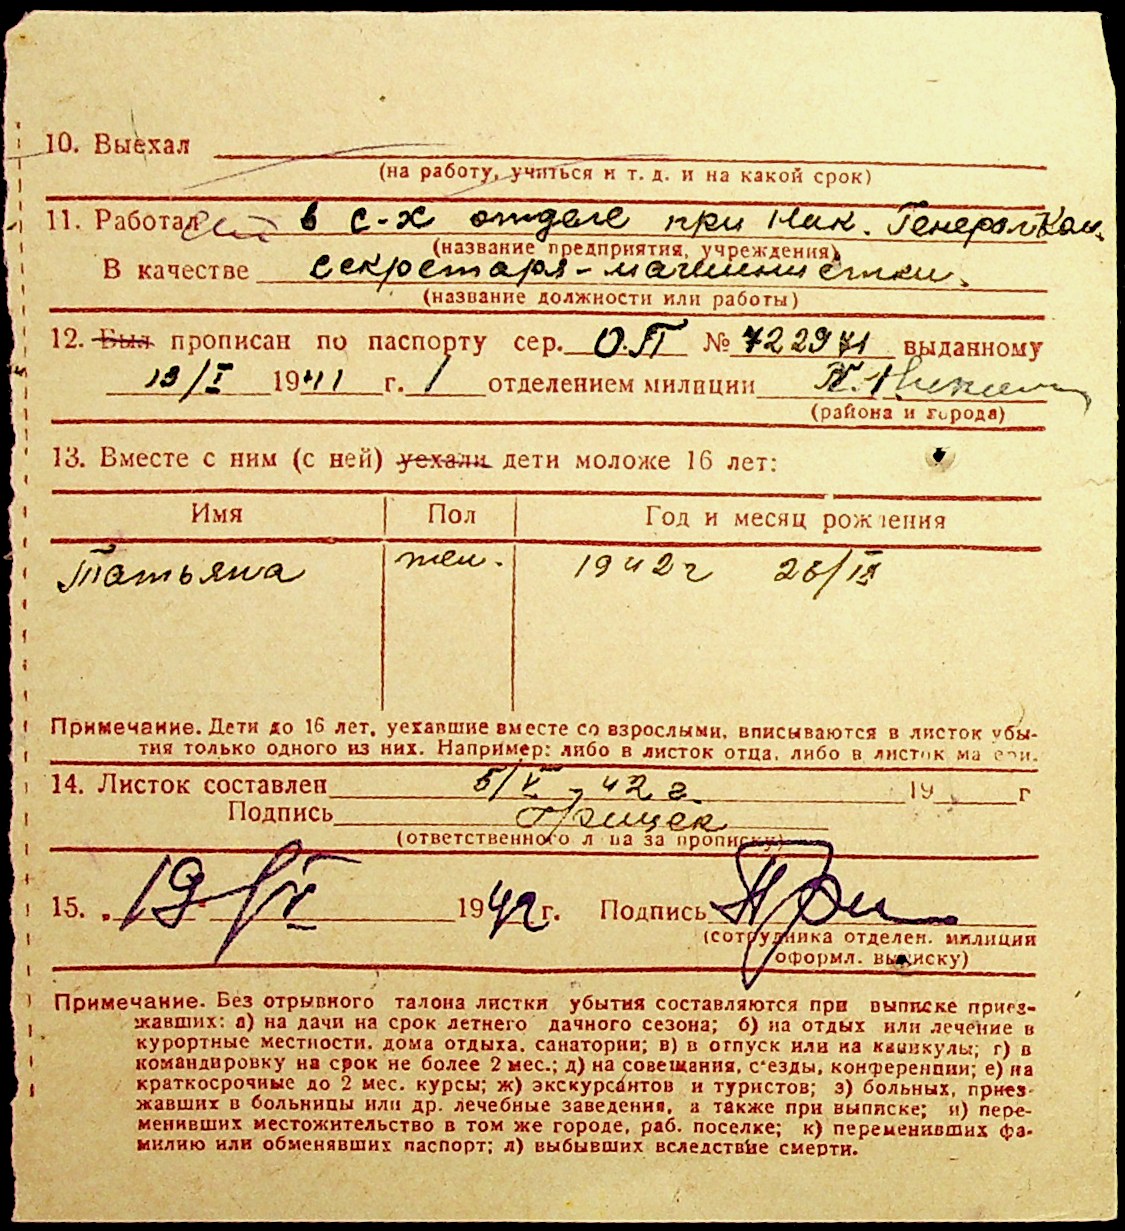 10. Выехал
(на работу, учиться и т. д. и на какой срок)
11. Работал в с-х отделе при Ник. Генерал Ком.
(название предприятия, учреждения)
В качестве секретаря-машинистки.
(название должности или работы)
12. Был прописан по паспорту сер. О.П № 722971 выданному
13/I 1941 г. 1 отделением милиции
(района и города)
13. Вместе с ним (с ней) уехали дети моложе 16 лет:
Имя Пол Год и месяц рождения
Татьяна жен. 1942 г
Примечание. Дети до 16 лет, уехавшие вместе со взрослыми, вписываются в листок убы-
тия только одного из них. Например: либо в листок отца, либо в листок матери.
14. Листок составлен 5/V - 42 г. 19 г
Подпись Грицек
(ответственного лица за прописку)
15. 19/V 1942 г. Подпись
(сотрудника отделен. милиции
оформл. выписку)
Примечание. Без отрывного талона листки убытия составляются при выписке приез-
жавших: а) на дачи на срок летнего дачного сезона; б) на отдых или лечение в
курортные местности, дома отдыха, санатории; в) в отпуск или на каникулы; г) в
командировку на срок не более 2 мес.; д) на совещания, съезды, конференции; е) на
краткосрочные до 2 мес. курсы; ж) экскурсантов и туристов; з) больных, приез-
жавших в больницы или др. лечебные заведения, а также при выписке; и) пере-
менивших местожительство в том же городе, раб. поселке; к) переменивших фа-
милию или обменявших паспорт; л) выбывших вследствие смерти.